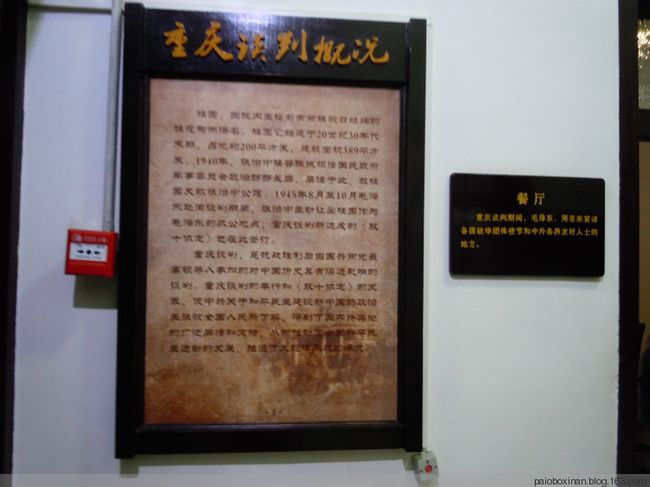 重庆谈判概况
桂园，因院内里楼前有对植碗口粗细的
桂花树而得名。桂园它始建于20世纪30年代
末期，占地约200平方米，建筑面积389平方
米。1940年，张治中接替陈诚担任国民政府
军事委员会政治部部长后，居住于此，故桂
园又称张治中公馆。1945年8月至10月毛泽
东赴渝谈判期间，张治中主动让出桂园作为
毛泽东的办公之所。重庆谈判所达成的《双
十协定》也在此签订。
重庆谈判，是抗战胜利后由国共两党最
高领导人参加的对中国历史具有深远影响的
谈判。重庆谈判的举行和《双十协定》的发
表，使中共关于和平民主建设新中国的政治
主张被全国人民所了解，得到了国内外舆论
的广泛同情和支持，从而推动了全国和平民
主运动的发展，推迟了大规模内战的爆发。
餐厅
重庆谈判期间，毛泽东、周恩来宴请
各国驻华团体使节和中外各界友好人士的
地方。
paioboxinan.blog.163.com